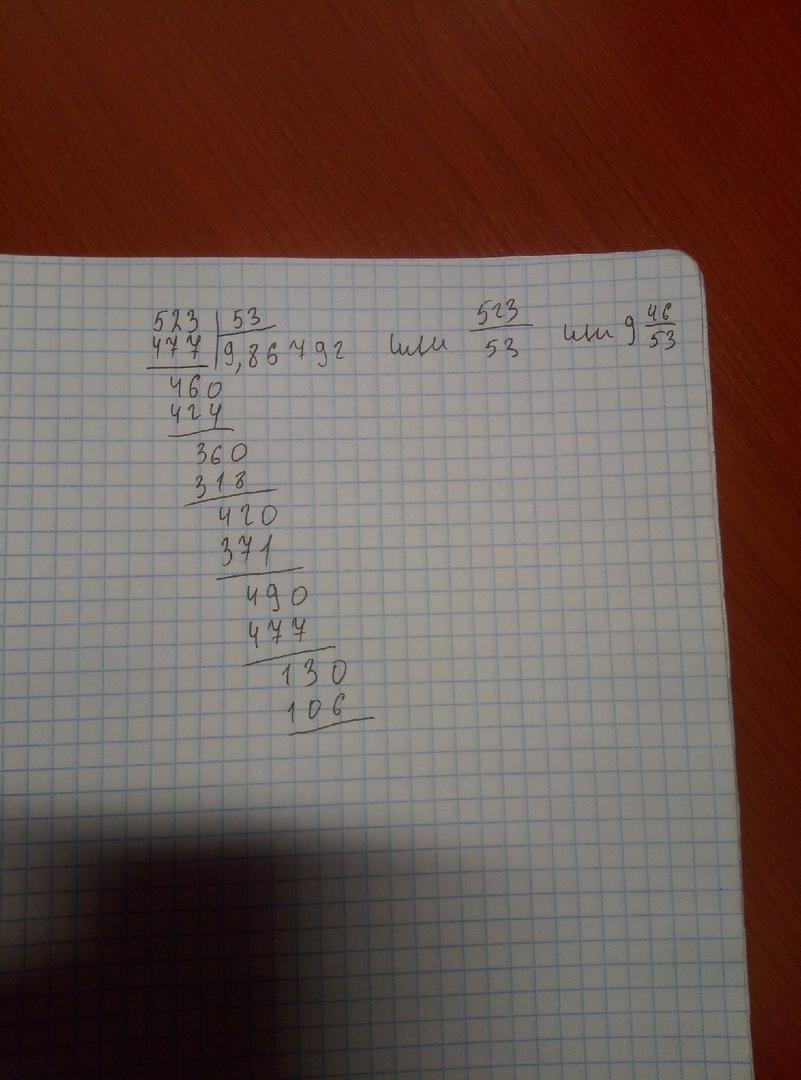 523 53
477 9,86792 или 523/53 или 9 46/53
460
424
360
318
420
371
490
477
130
106